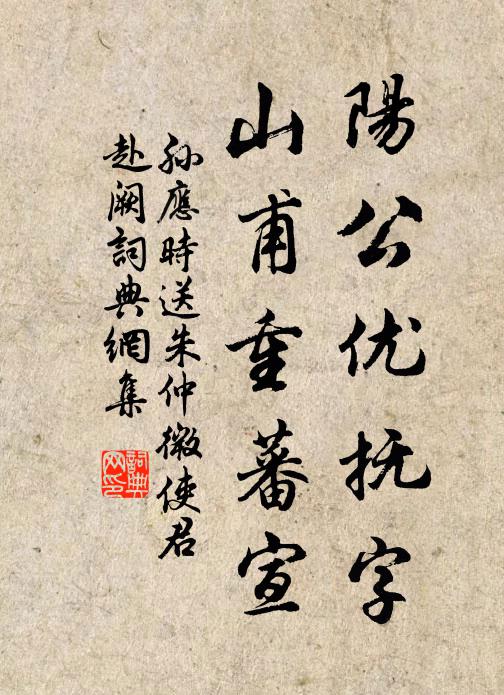 陽公优抚字
山甫重蕃宣
孫應時送朱仲微使君
赴阙詞典網集
詞典网印